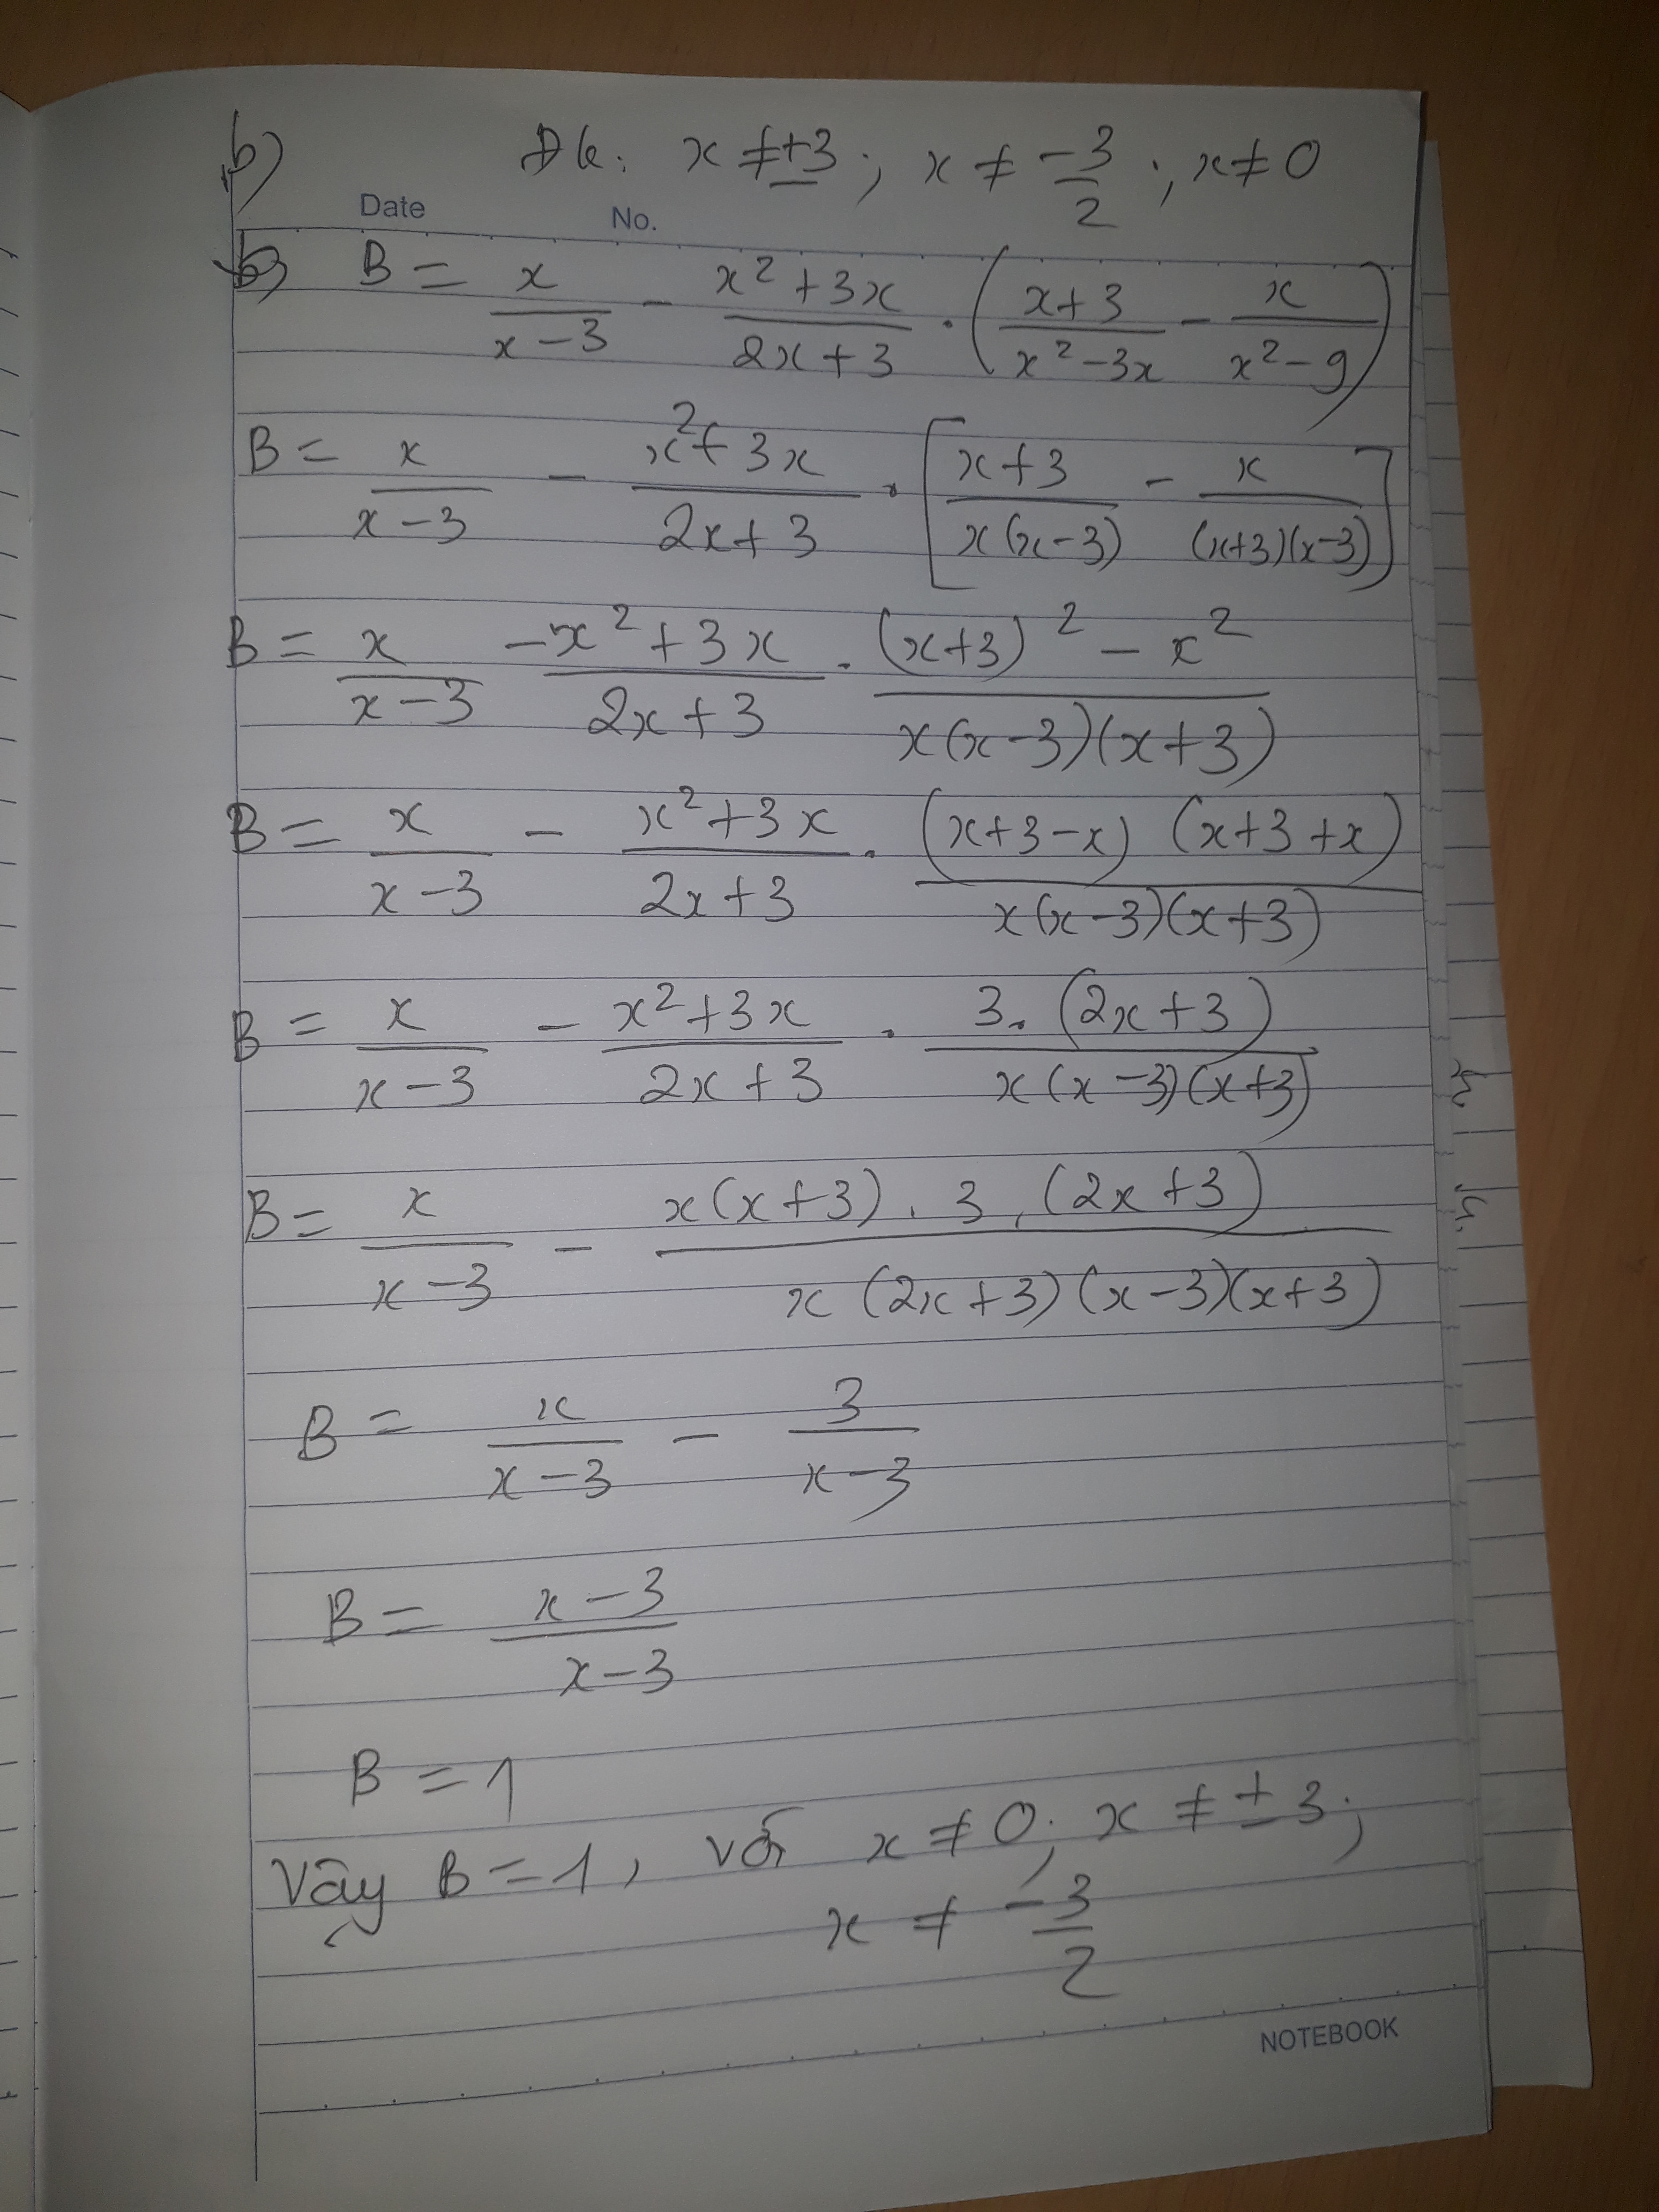 b) Đk: x ≠ ±3; x ≠ -3/2; x ≠ 0
Date No.
b) B = x/(x-3) - (x²+3x)/(2x+3) . ((x+3)/(x²-3x) - x/(x²-9))
B = x/(x-3) - (x²+3x)/(2x+3) . [(x+3)/(x(x-3)) - x/((x+3)(x-3))]
B = x/(x-3) - (x²+3x)/(2x+3) . ((x+3)² - x²)/(x(x-3)(x+3))
B = x/(x-3) - (x²+3x)/(2x+3) . ((x+3-x)(x+3+x))/(x(x-3)(x+3))
B = x/(x-3) - (x²+3x)/(2x+3) . (3.(2x+3))/(x(x-3)(x+3))
B = x/(x-3) - (x(x+3).3.(2x+3))/(x(2x+3)(x-3)(x+3))
B = x/(x-3) - 3/(x-3)
B = (x-3)/(x-3)
B = 1
Vậy B = 1, với x ≠ 0; x ≠ ±3;
x ≠ -3/2
NOTEBOOK